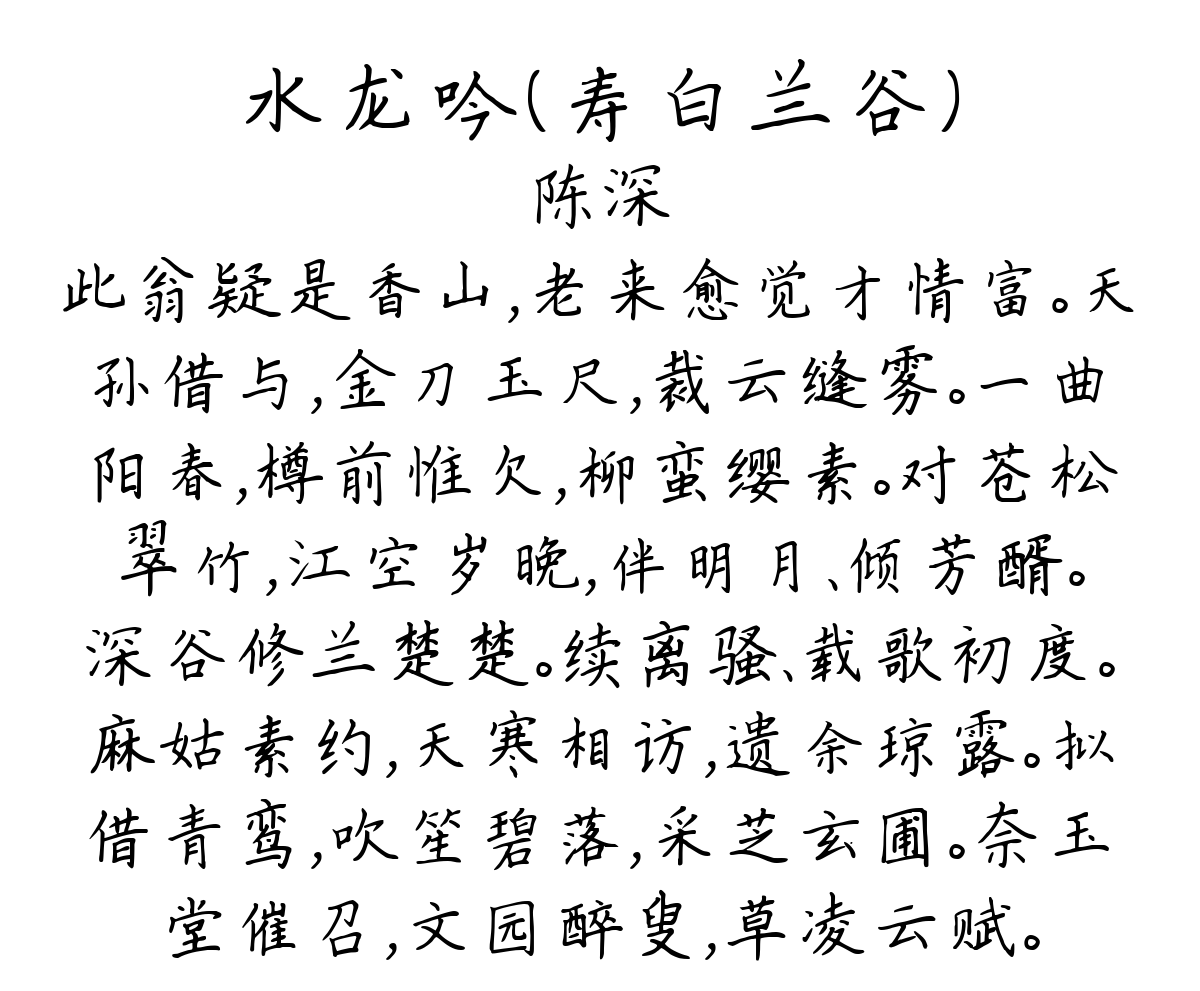 水龙吟(寿白兰谷)
陈深
此翁疑是香山,老来愈觉才情富。天
孙借与,金刀玉尺,裁云缝雾。一曲
阳春,樽前惟欠,柳蛮缨素。对苍松
翠竹,江空岁晚,伴明月、倾芳醑。
深谷修兰楚楚。续离骚、载歌初度。
麻姑素约,天寒相访,遗余琼露。拟
借青鸾,吹笙碧落,采芝玄圃。奈玉
堂催召,文园醉叟,草凌云赋。